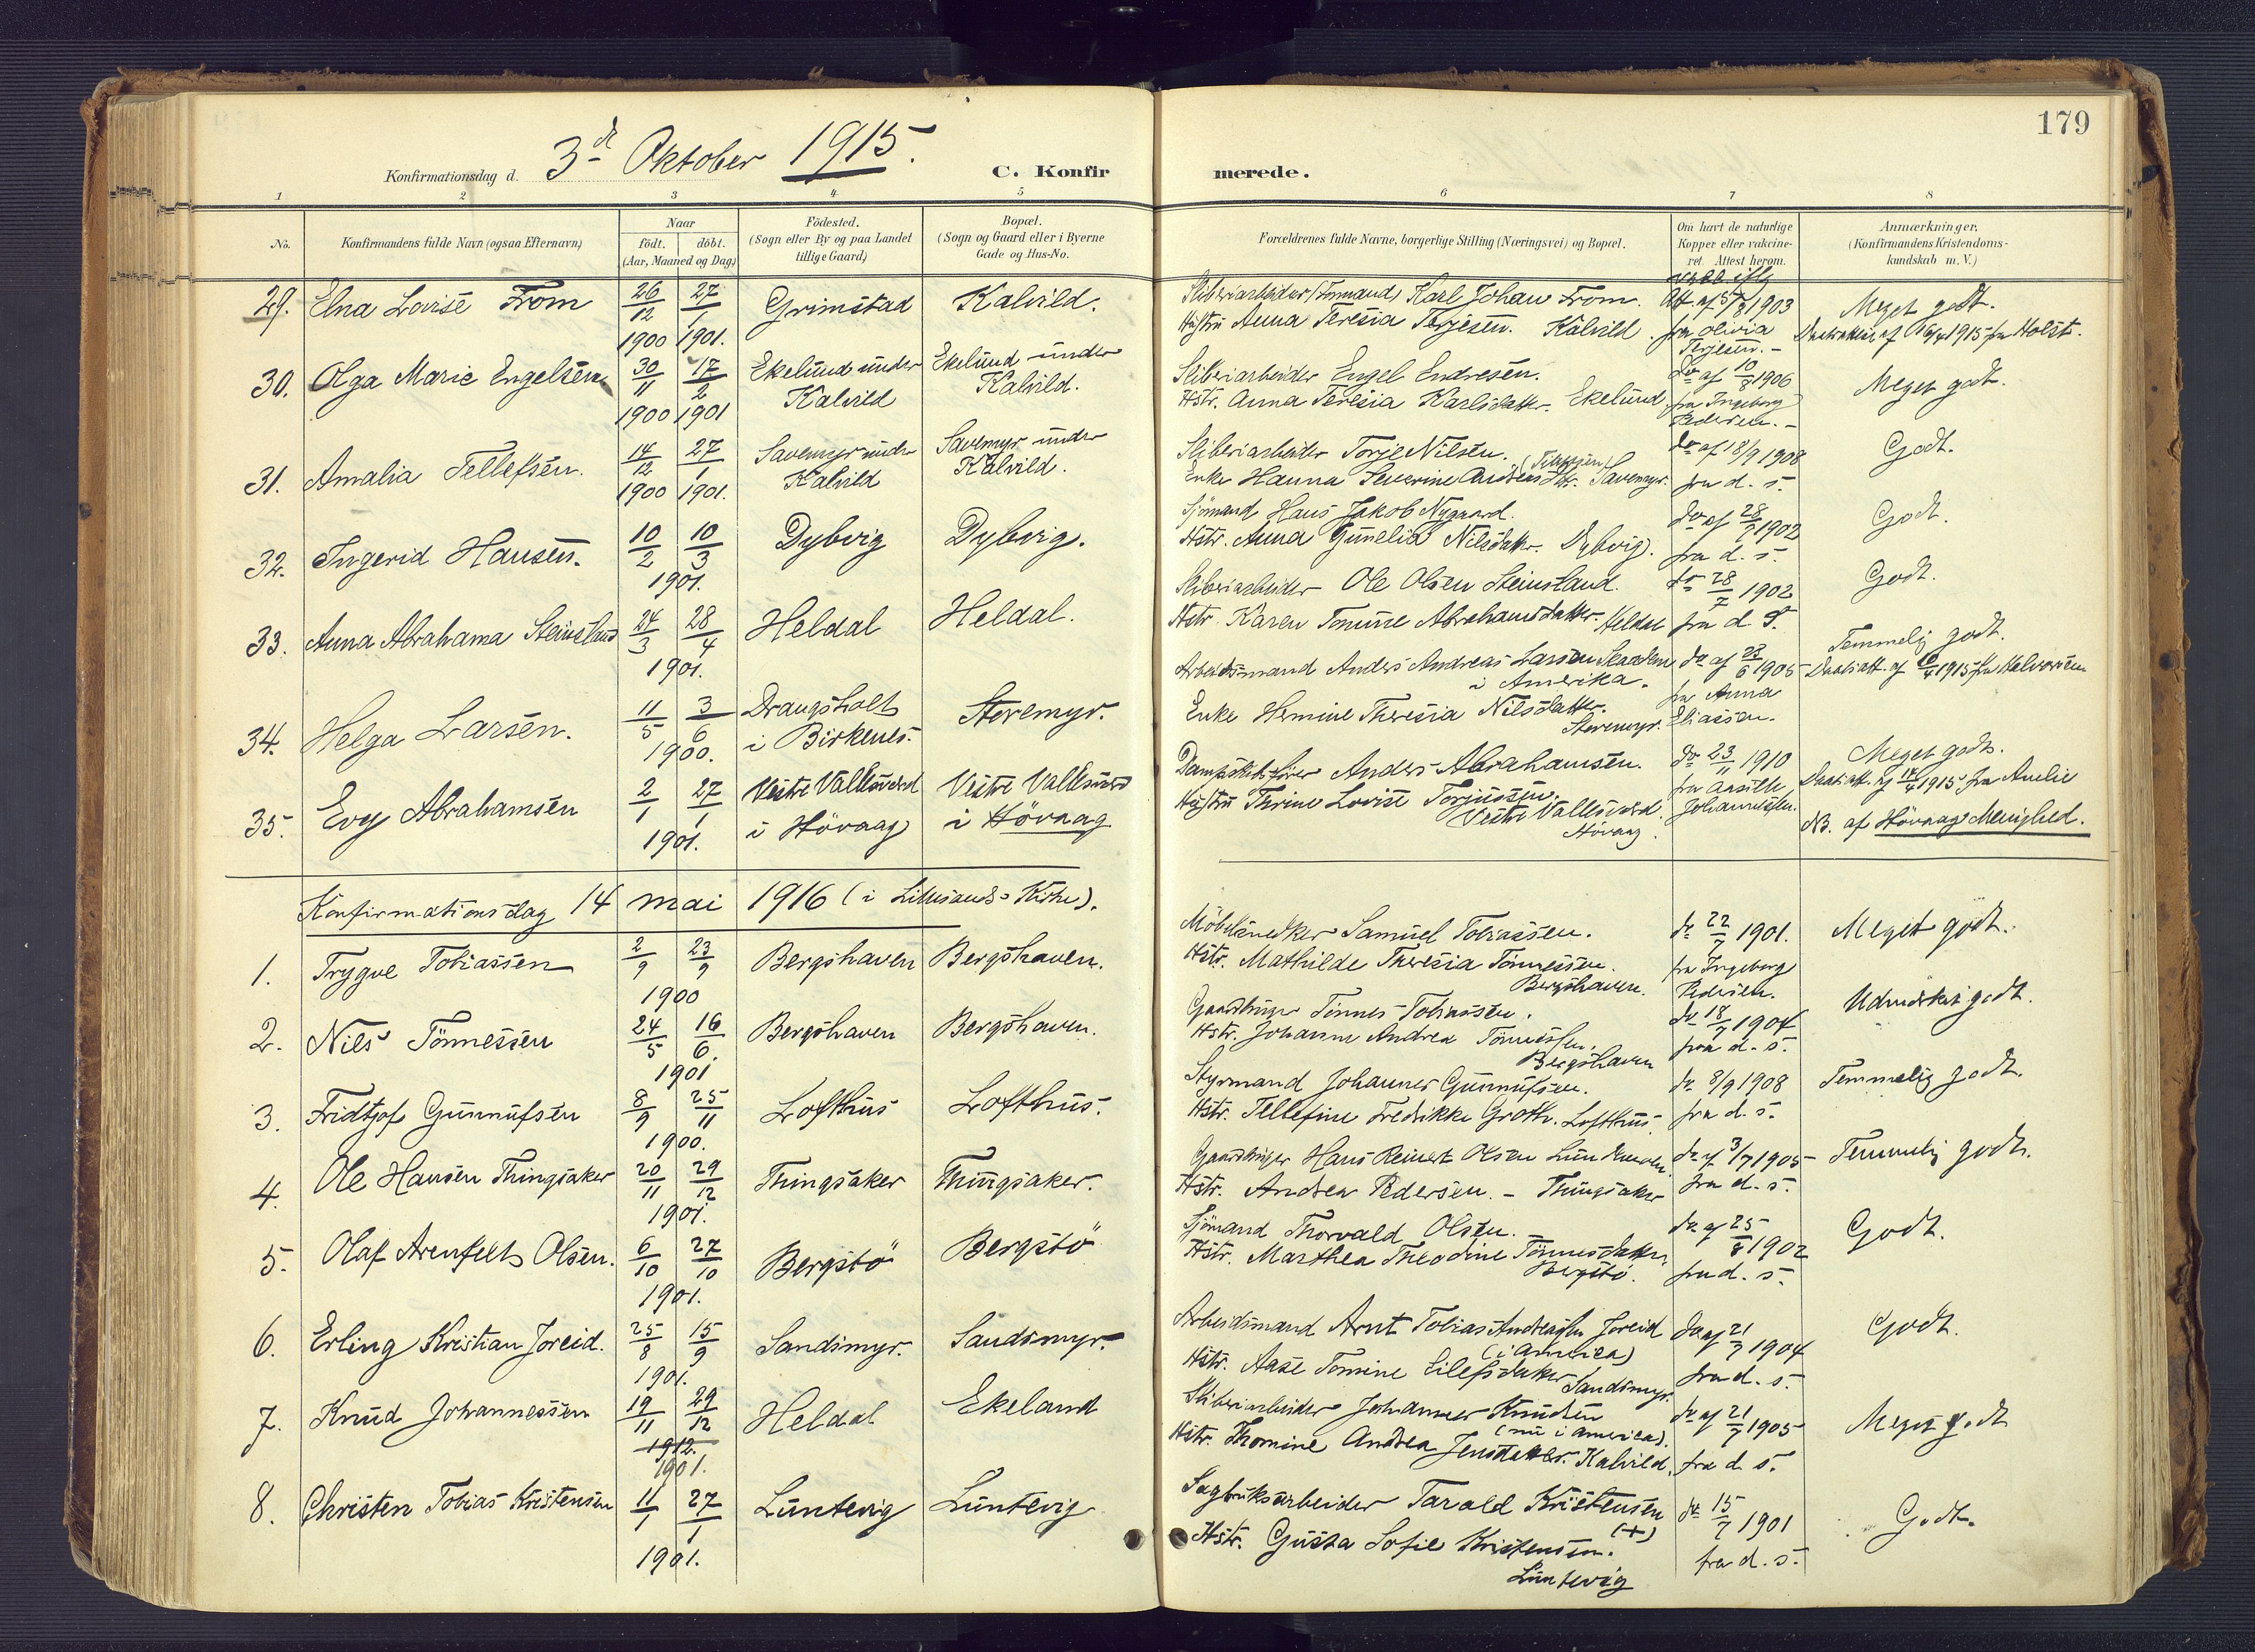 179
Konfirmationsdag d. 3d Oktober 1915.
C. Konfirmerede.
1 2 3 4 5 6 7 8
No.
Konfirmandens fulde Navn (ogsaa Efternavn)
Naar
födt. döbt.
(Aar, Maaned og Dag)
Födested.
(Sogn eller By og paa Landet
tillige Gaard)
Bopæl.
(Sogn og Gaard eller i Byerne
Gade og Hus-No.
Forældrenes fulde Navne, borgerlige Stilling (Næringsvei) og Bopæl.
Om havt de naturlige
Kopper eller vakcine-
ret. Attest herom.
Anmærkninger.
(Konfirmandens Kristendoms-
kundskab m. V.)
29. Elna Lovise From 26/12 1900 27/1 1901. Grimstad Kalvild.
Sliberiarbeider (Formand) Karl Johan From.
Hustru Anna Teresia Terjesen. Kalvild.
Att. af 5/8 1903
fra Olivia
Terjesen.-
Meget godt.
Daabsattest af 16/4 1915 fra Holst.
30. Olga Marie Engelsen 30/11 1900 17/2 1901 Ekelund under Kalvild Ekelund under Kalvild.
Sliberiarbeider Engel Endresen.
Hstr. Anna Teresia Karlsdatter. Ekelund
do af 10/8 1906
fra Ingeborg
Pedersen.-
Meget godt.
31. Amalia Tellefsen. 14/12 1900 27/1 1901. Savemyr under Kalvild Savemyr under Kalvild.
Sliberiarbeider Torje Nilsen.
Enke Hanna Severine Savemyr.
do af 18/9 1908
fra d. s.
Godt.
32. Ingerid Hansen. 10/2 10/3 1901. Dybvig Dybvig.
Sjömand Hans Jakob Nygaard.
Hstr. Anna Gunelia Nilsdatter. Dybvig.
do af 28/7 1902
fra d. s.
Godt.
33. Anna Abrahama Steinsland 24/3 28/4 1901. Heldal Heldal.
Sliberiarbeider Ole Olsen Steinsland.
Hstr. Karen Tomine Abrahamsdatter. Heldal
do 28/7 1902
fra d. s.
Godt.
34. Helga Larsen. 11/5 3/6 1900. Draugsholt i Birkenes. Storemyr.
Arbeidsmand Anders Andreas Larsen
i Amerika.
Enke Hermine Theresia Nilsdatter.
Storemyr.
do af 23/6 1905
fra Anna
Eliassen.
Temmelig godt.
Daabsatt. af 10/4 1915 fra Halvorsen
35. Evy Abrahamsen 2/1 27/1 1901. Vestre Vallesværd i Hövaag Vestre Vallesværd i Hövaag
Dampskibsfører Anders Abrahamsen.
Hustru Thrine Lovise Torjussen.
Vestre Vallesværd.
Hövaag.
do 23/11 1910
fra Aasille
Johannessen.
Meget godt.
Daabsatt. af 14/4 1915 fra Amelie
NB. af Hövaag Menighed.
Konfirmationsdag 14 mai 1916 (i Lillesands Kirke).
1. Trygve Tobiassen 2/9 23/9 1900 Bergshaven Bergshaven.
Möbelsnedker Samuel Tobiassen.
Hstr. Mathilde Theresia Tönnessen.
Bergshaven.
do 22/7 1901.
fra Ingeborg
Pedersen.
Meget godt.
2. Nils Tönnessen 24/5 16/6. 1901 Bergshaven Bergshaven.
Gaardbruger Tönnes Tobiassen.
Hstr. Johanne Andrea Tönnessen.
Bergshaven
do 18/7 1904
fra d. s.
Udmerket godt.
3. Fridtjof Gunnufsen 8/9 25/11 1900. Lofthus Lofthus.
Styrmand Johannes Gunnufsen.
Hstr. Tellefine Fredrikke Groth. Lofthus.
do 8/9 1908
fra d. s.
Temmelig godt.
4. Ole Hansen Thingsaker 20/11 29/12 1901. Thingsaker Thingsaker.
Gaardbruger Hans Reinert Olsen
Hstr. Andrea Pedersen. - Thingsaker
do af 3/7 1905
fra d. s.
Temmelig godt.
5. Olaf Arenfelt Olsen. 6/10 27/10 1901. Bergstö Bergstö
Sjömand Thorvald Olsen.
Hstr. Marthea Theodine Tönnesdatter.
Bergstö.
do af 25/8 1902
fra d. s.
Godt.
6. Erling Kristian Joreid. 25/8 15/9 1901. Sandsmyr. Sandsmyr.
Arbeidsmand Arnt Tobias Andreassen Joreid
(i America)
Hstr. Aase Tomine Eilefsdatter Sandsmyr.
do af 21/7 1904
fra d. s.
Godt.
7. Knud Johannessen 19/11 29/12 1912. 1901. Heldal Ekeland
Sliberiarbeider Johannes Knudsen
(nu i America).
Hstr. Thomine Andrea Jensdatter. Kalvild.
do af 21/7 1905
fra d. s.
Meget godt
8. Christen Tobias Kristensen 11/1 27/1 1901. Luntevig Luntevig
Sagbruksarbeider Tarald Kristensen
(+)
Hstr. Gusta Sofie Kristensen.
Luntevig
do 15/7 1901
fra d. s.
Godt.